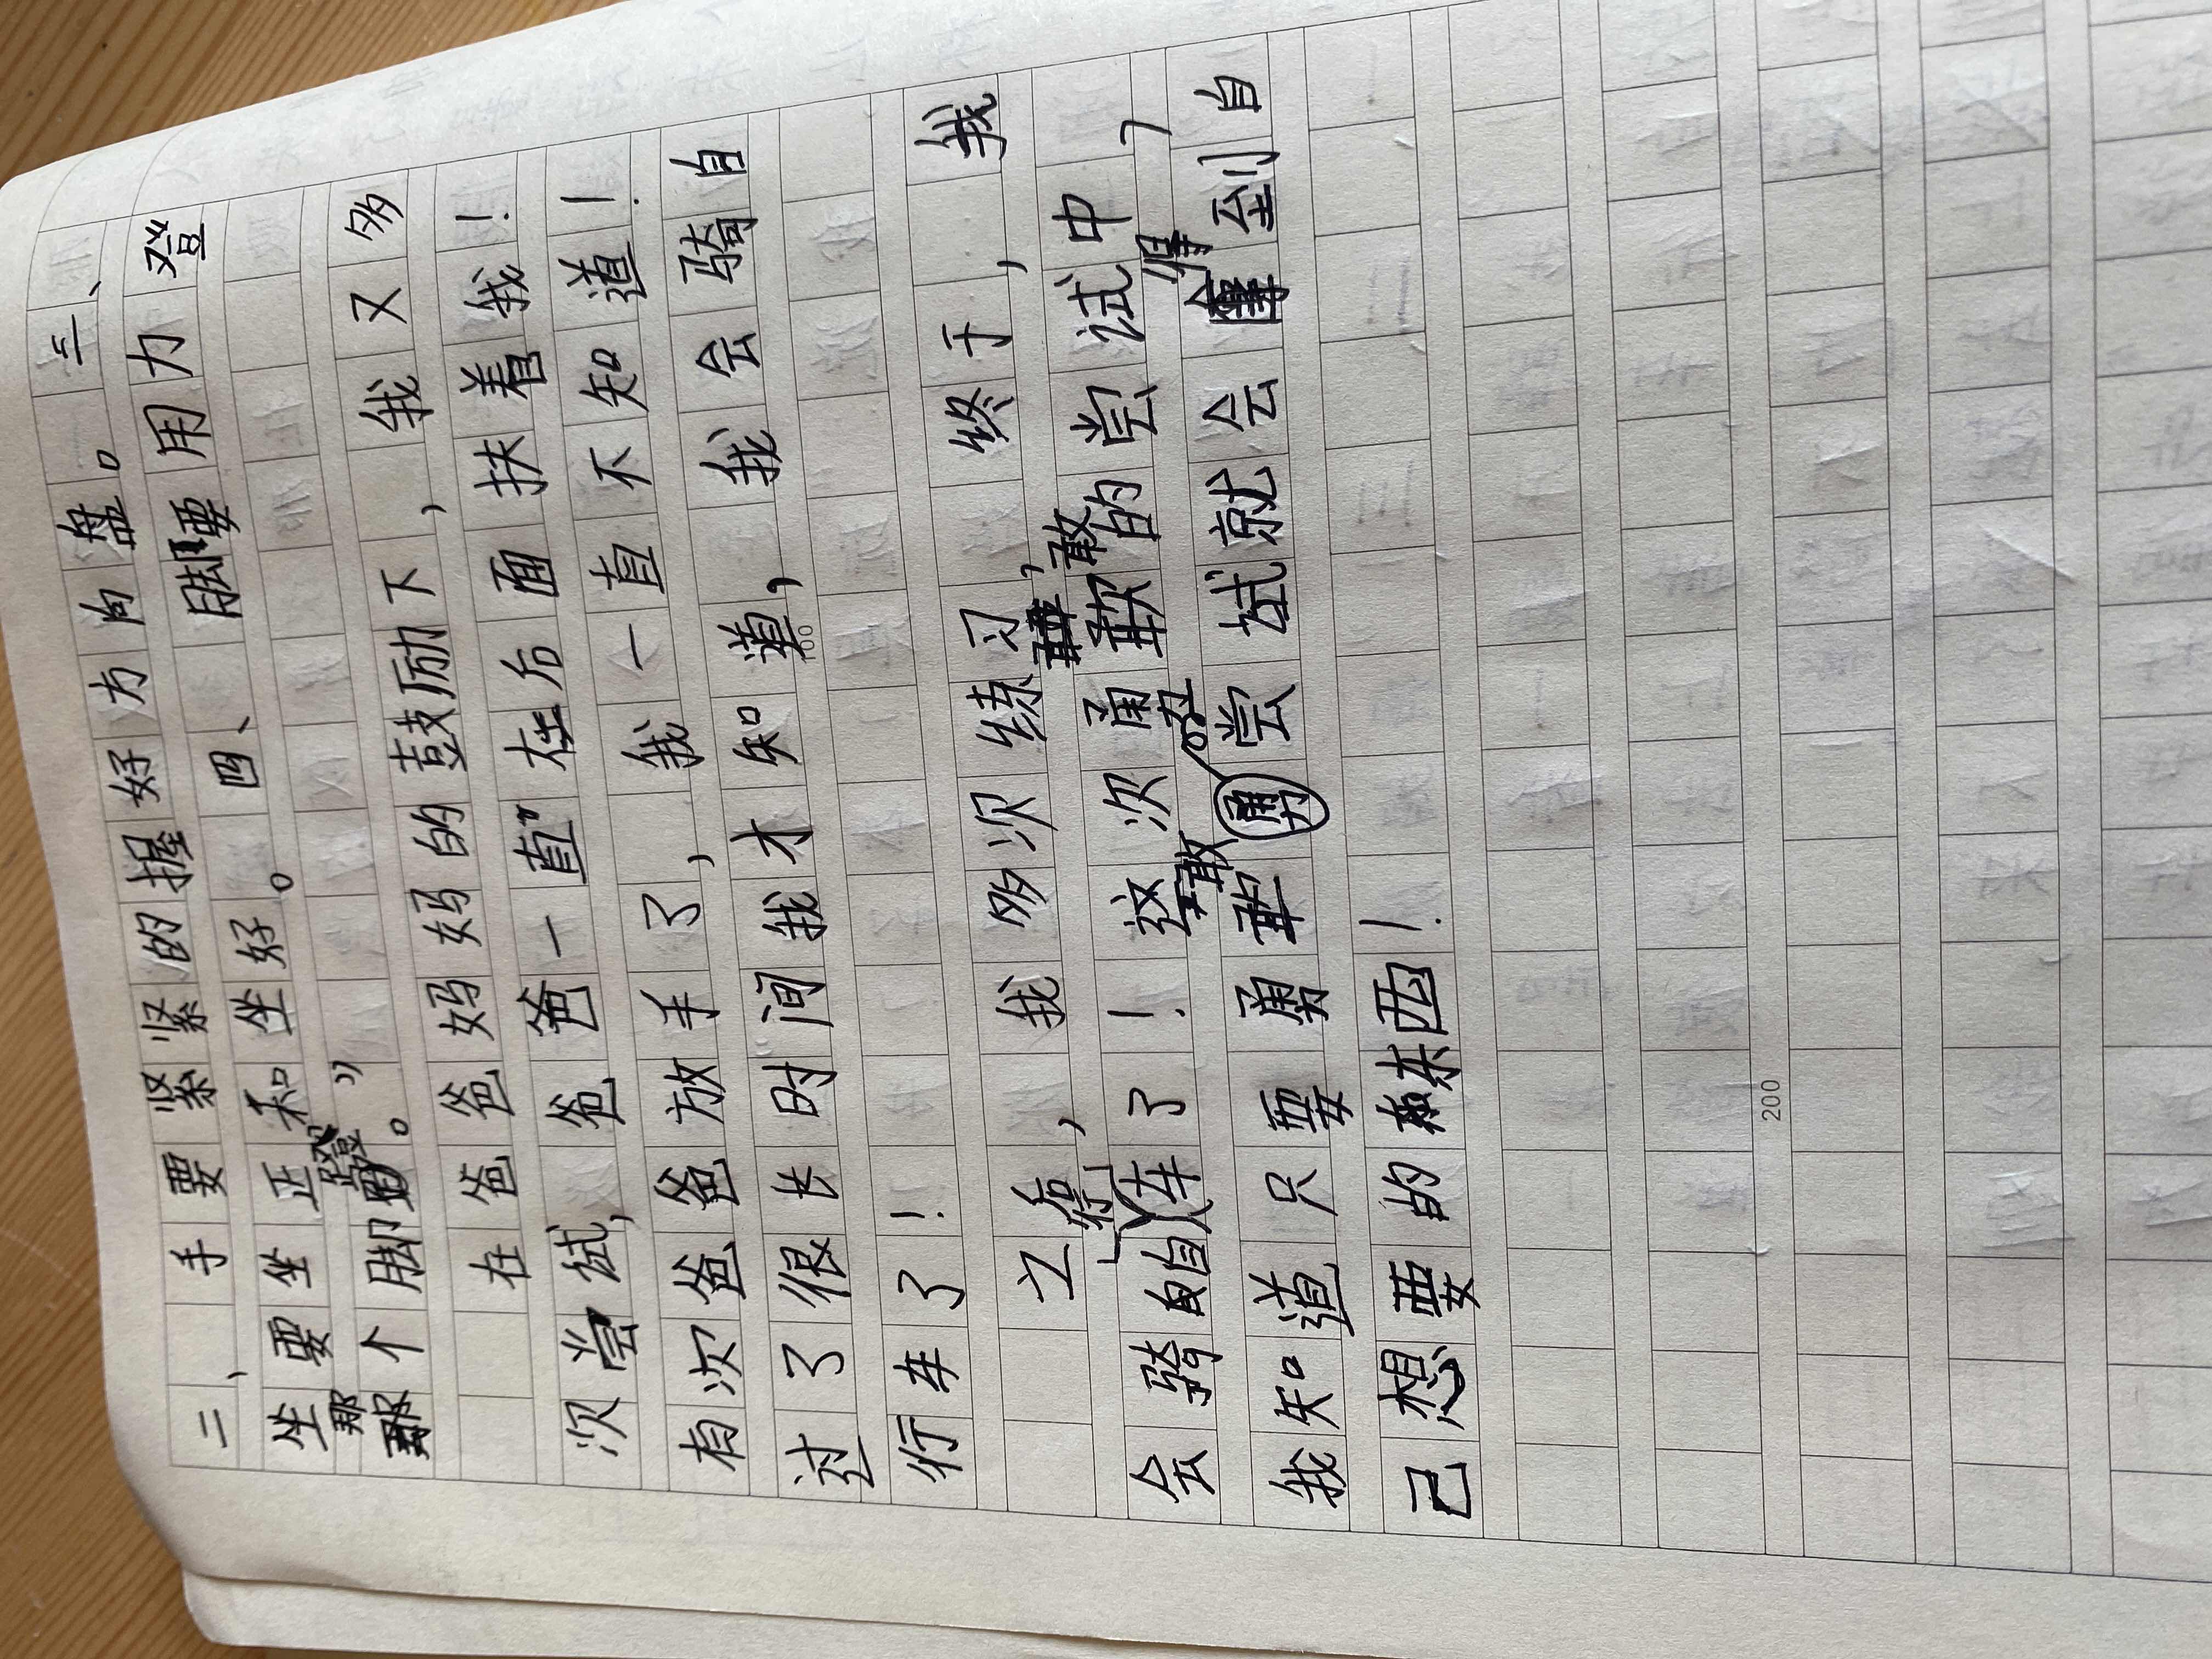 二、手要紧紧的握好方向盘。三、
坐要坐正和坐好。四、脚要用力登
那个脚蹬。”
在爸爸妈妈的鼓励下,我又多
次尝试,爸爸一直在后面扶着我!
有次爸爸放手了,我一直不知道!
过了很长时间我才知道,我会骑自
行车了!
立秀,我多次练习,终于,我
会骑自行车了!这次勇敢的尝试中,
我知道只要勇敢尝试就会得到自
己想要的东西!
200